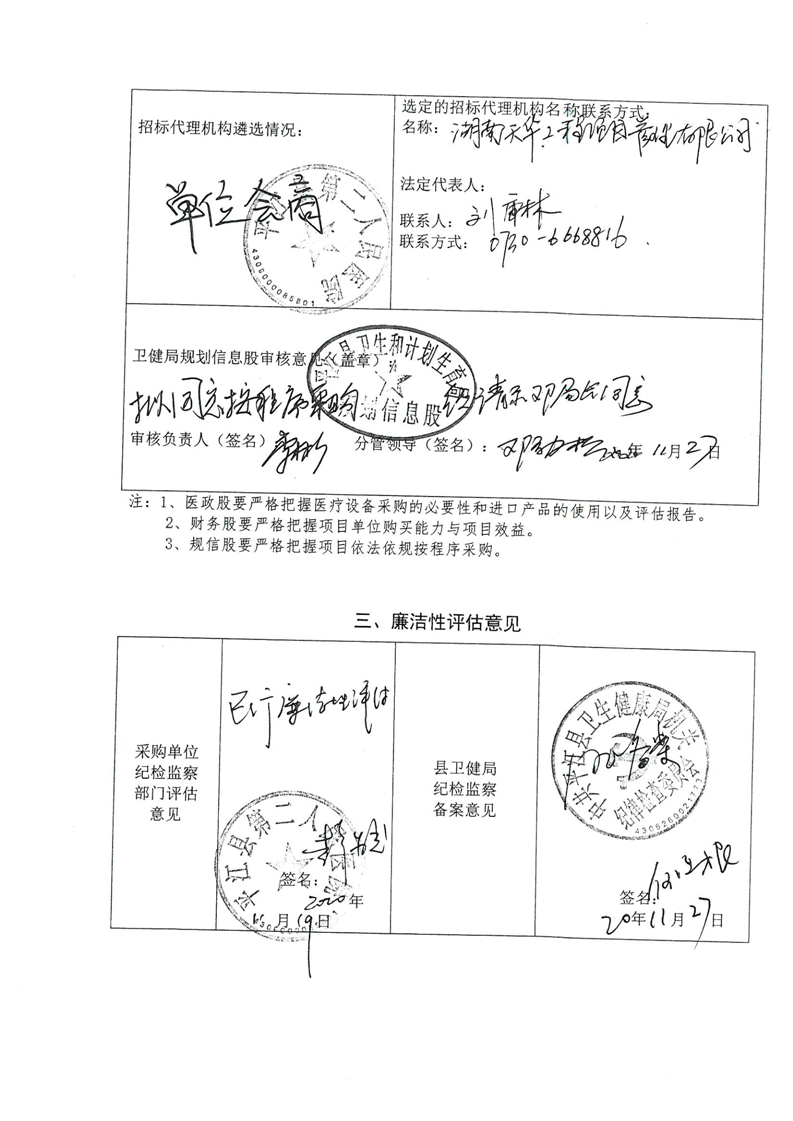 招标代理机构遴选情况：
单位会商
选定的招标代理机构名称联系方式
名称：湖南天华工程项目管理有限公司
法定代表人：
联系人：刘
联系方式：0730-6668816
平江县第二人民医院
4306000085801
卫健局规划信息股审核意见（盖章）
县卫生和计划生育局
规划信息股
拟同意按程序采购 经请示邓局长同意
审核负责人（签名） 李彬 分管领导（签名）：邓 2020年11月27日
注：1、医政股要严格把握医疗设备采购的必要性和进口产品的使用以及评估报告。
2、财务股要严格把握项目单位购买能力与项目效益。
3、规信股要严格把握项目依法依规按程序采购。
三、廉洁性评估意见
采购单位
纪检监察
部门评估
意见
已行廉洁性评估
平江县第二人民医院
签名：
2020年
11月19日
县卫健局
纪检监察
备案意见
中共平江县卫生健康局机关
纪律检查委员会
同意备案
签名：
20年11月27日